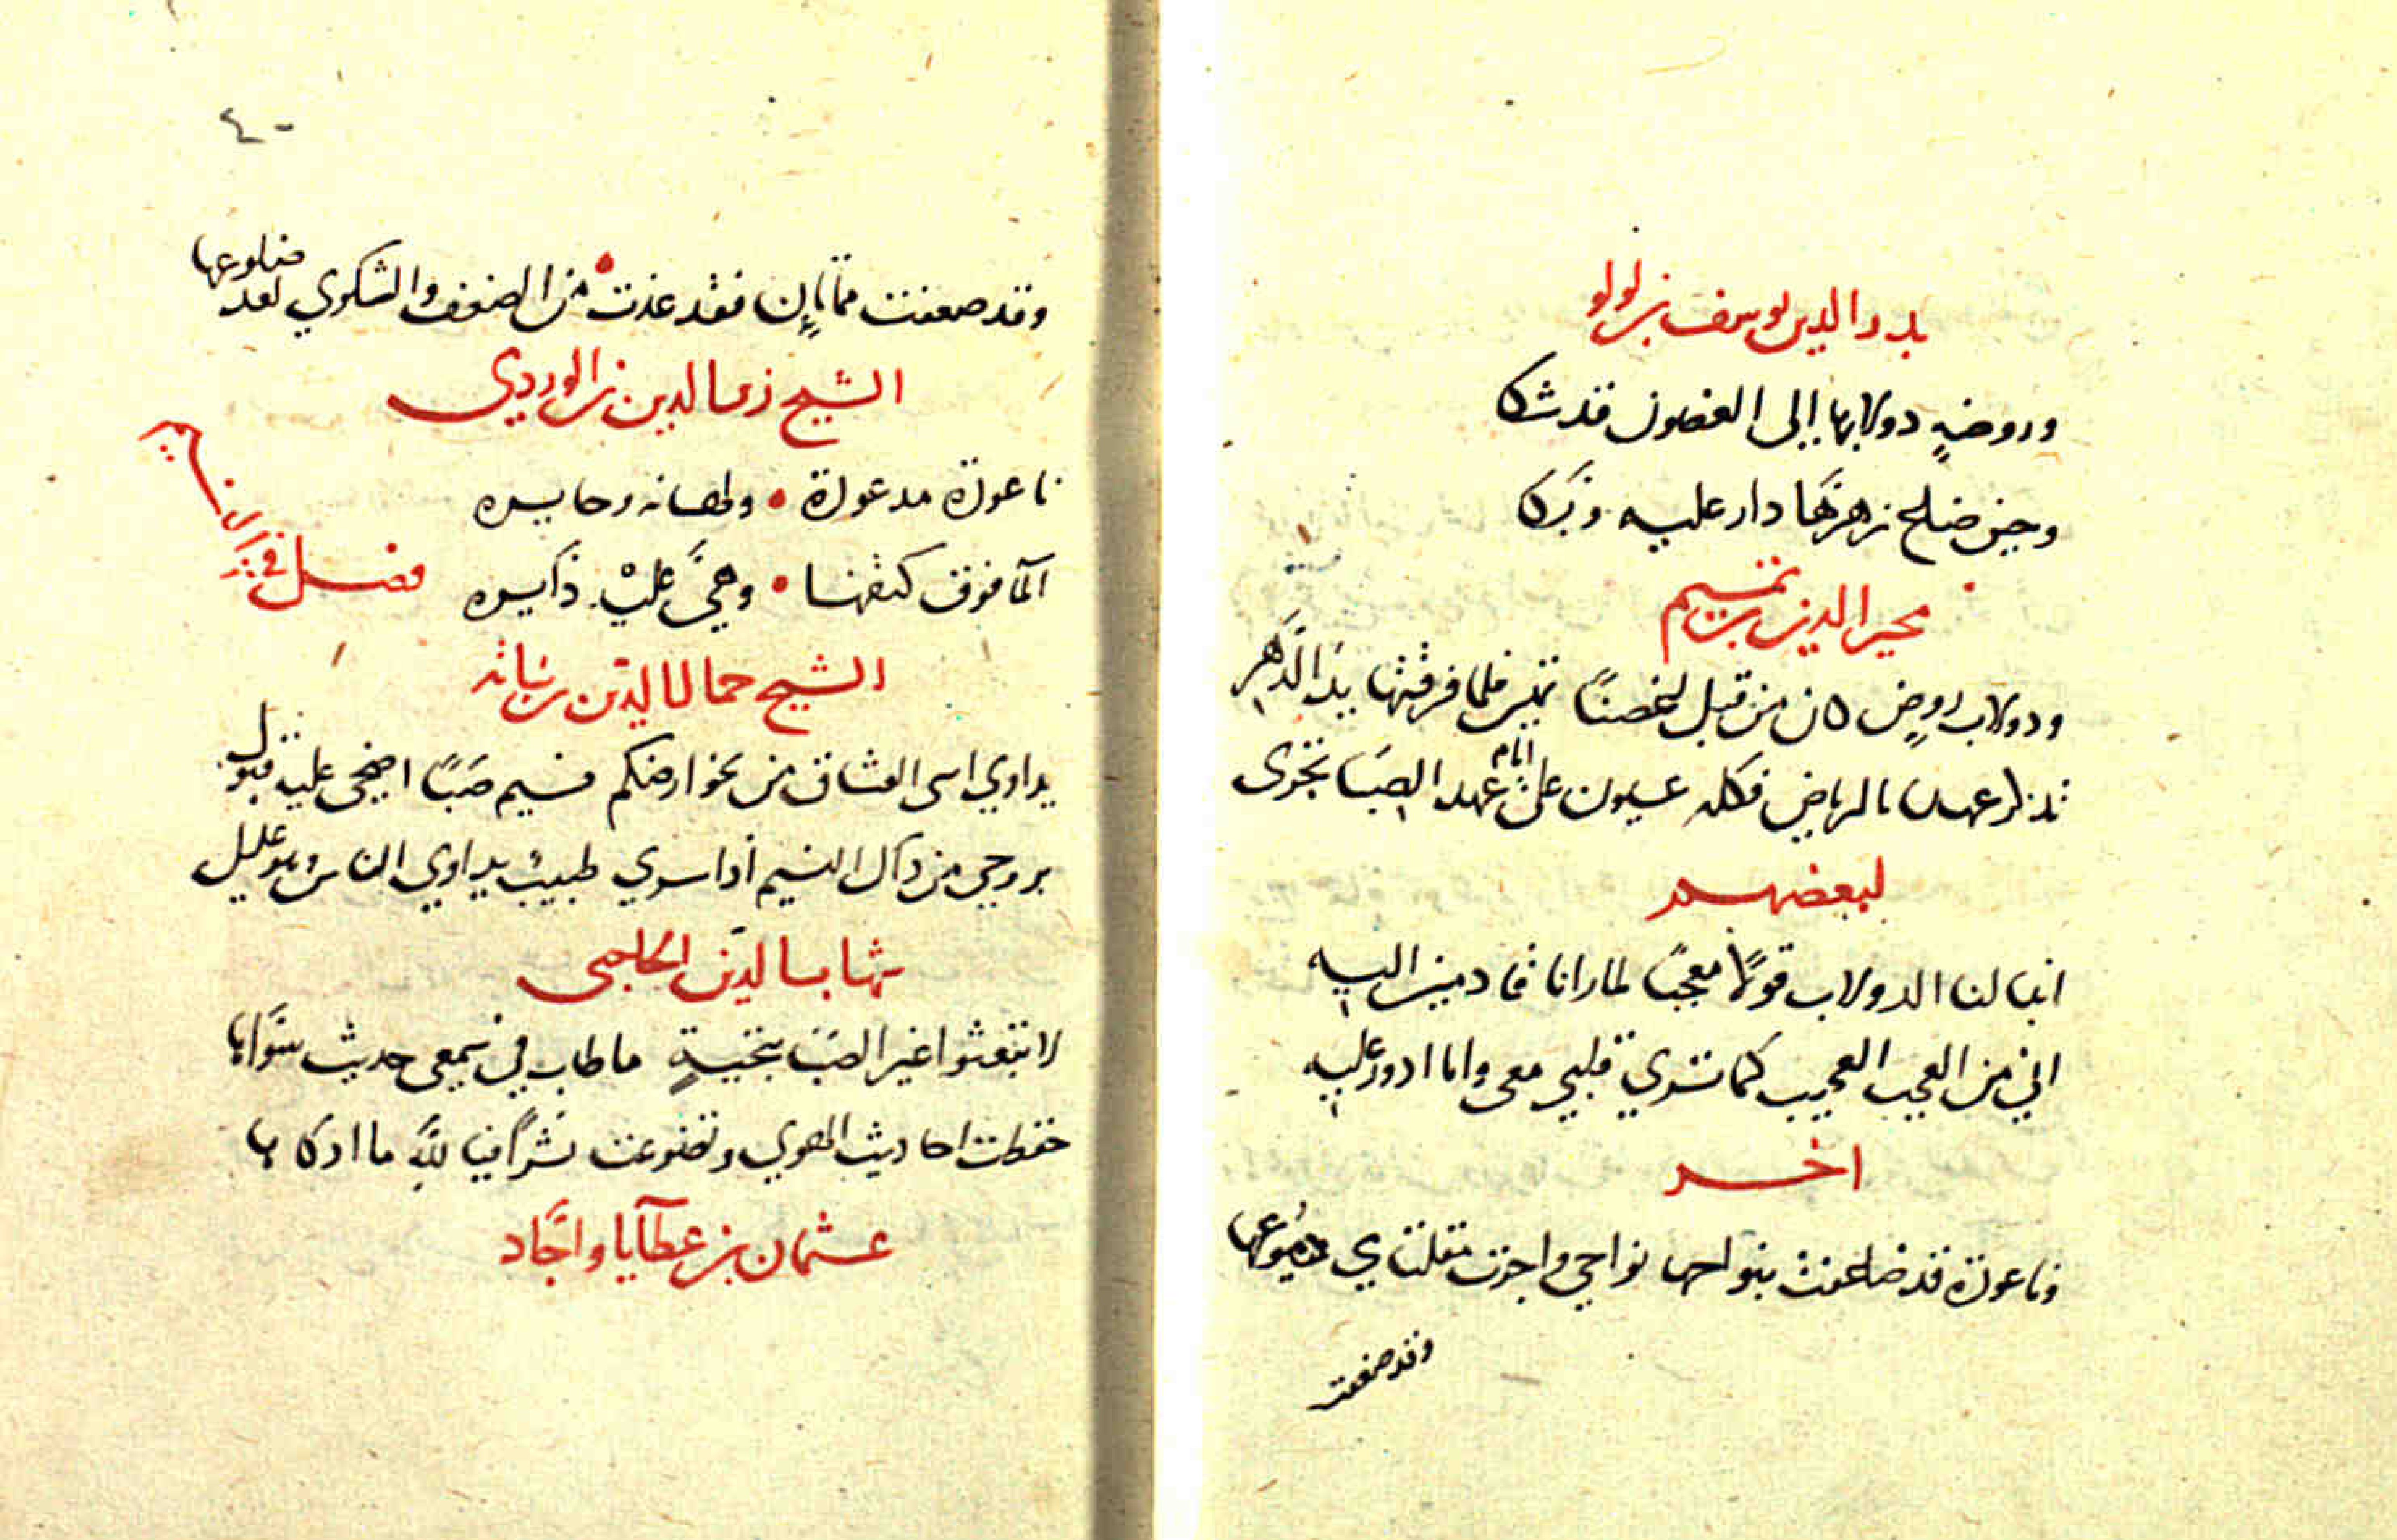 بدر الدين يوسف بن لولو
وروضةٍ دولابها إلى الغصون قد شكا
وحين ضاع زهرها دار عليه وبكا
مجير الدين بن تميم
ودولاب روضٍ كان من قبل اغصنًا تميس فلما فرقتها يد الدهر
تذكر عهدا بالرياض فكله عيون على ايام عهد الصبا تجرى
لبعضهم
ابدا لنا الدولاب قولا معجبًا لما رانا قادمين اليه
اني من العجب العجيب كما ترى قلبي معي وانا ادور عليه
اخر
وناعورة قد ضاعفت بنواحها نواحي واجرت مقلتاي دموعها
وقد ضعفت
٤٠
وقد ضعفت مما بان فقد غدت من الضعف والشكوي تعد ضلوعها
الشيخ زين الدين بن الوردي
ناعورة مدعورة ولهانه وحايره
الما فوق كتفها وهيَ عليه دايره
فصل في
الشيخ جمال الدين بن نباته
يداوي اسى العشاق من نحو ارضكم نسيم صبًا اضحى عليه قبول
بروحي من ذاك النسيم اذا سرى طبيب يداوي الناس وهو عليل
شهاب الدين الحاجبى
لا تبعثوا غير الصبا بتحيةٍ ما طاب في سمعى حديث سواها
حفظت احاديث الهوى وتضوعت نشرًا فيا لله ما ازكاها
عثمان بن عطايا واجاد